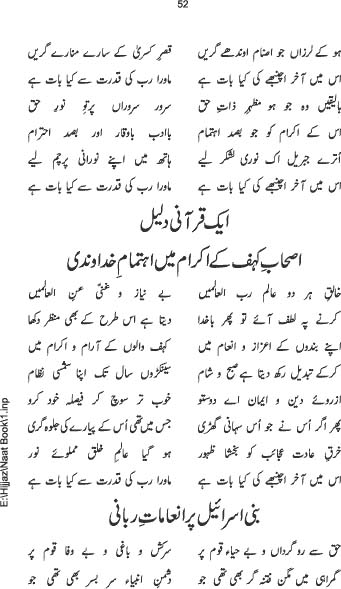 52
ہو کے لرزاں جو اصنام اوندھے گریں قصرِ کسریٰ کے سارے منارے گریں
اس میں آخر اچنبھے کی کیا بات ہے ماورا رب کی قدرت سے کیا بات ہے
بالیقیں وہ جو ہو مظہرِ ذاتِ حق سرور سروراں پرتوِ نورِ حق
اس کے اکرام کو جو بصد اہتمام باادب باوقار اور بصد احترام
اُترے جبریل اک نوری لشکر لیے ہاتھ میں اپنے نورانی پرچم لیے
اس میں آخر اچنبھے کی کیا بات ہے ماورا رب کی قدرت سے کیا بات ہے
ایک قرآنی دلیل
اصحابِ کہف کے اکرام میں اہتمامِ خداوندی
خالقِ ہر دو عالم رب العالمیں بے نیاز و غنیٔ عنِ العالمیں
کرنے پہ لطف آئے تو پھر باخدا دیتا ہے اس طرح کے بھی منظر دکھا
اپنے بندوں کے اعزاز و انعام میں کہف والوں کے آرام و اکرام میں
کرکے تبدیل رکھ دیتا ہے صبح و شام سینکڑوں سال تک اپنا شمسی نظام
ازروئے دین و ایمان اے دوستو خوب تر سوچ کر فیصلہ خود کرو
پھر اگر اُس نے جو اُس سہانی گھڑی جس میں تھی اُس کے پیارے کی جلوہ گری
خرقِ عادت عجائب کو بخشا ظہور ہو گیا عالمِ خلق مملوئے نور
اس میں آخر اچنبھے کی کیا بات ہے ماورا رب کی قدرت سے کیا بات ہے
بنی اسرائیل پر انعاماتِ ربانی
حق سے رو گرداں و بے حیاء قوم پر سرکش و باغی و بے وفا قوم پر
گمراہی میں مگن فتنہ گر بھی تھی جو دشمنِ انبیاء سر بسر بھی تھی جو
E:\Hijjaz\Naat Book\1.inp